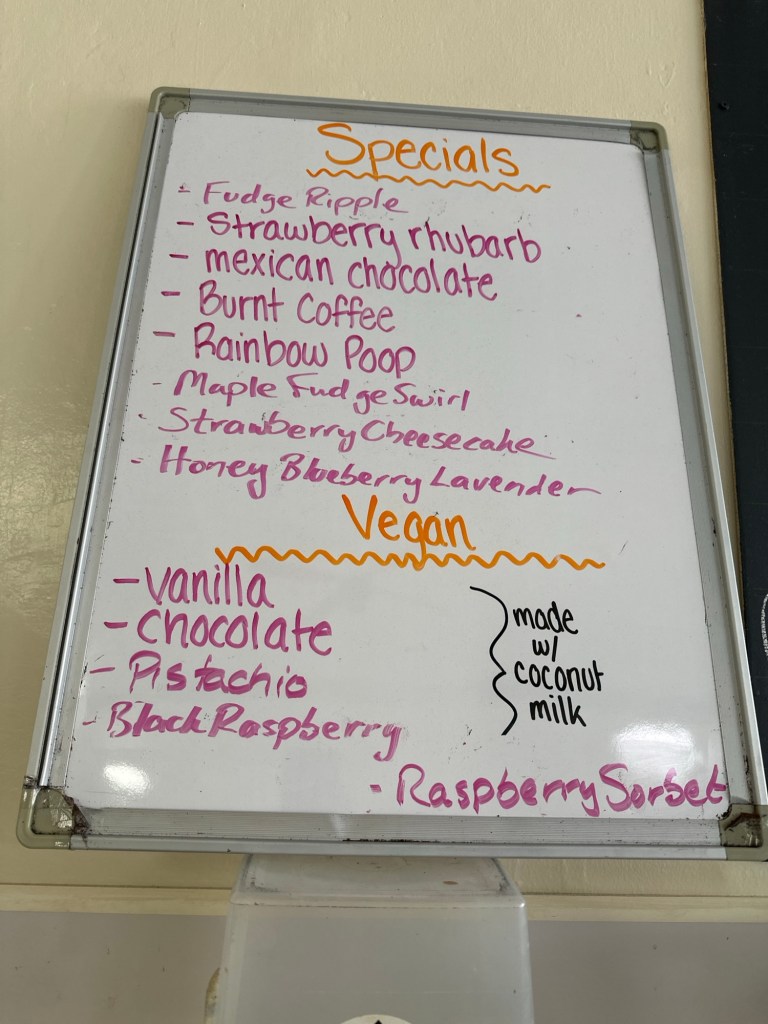 Specials
- Fudge Ripple
- Strawberry rhubarb
- mexican chocolate
- Burnt Coffee
- Rainbow Poop
- Maple Fudge Swirl
- Strawberry Cheesecake
- Honey Blueberry Lavender
Vegan
- vanilla
- chocolate
- Pistachio
- Black Raspberry
made
w/
coconut
milk
- Raspberry Sorbet